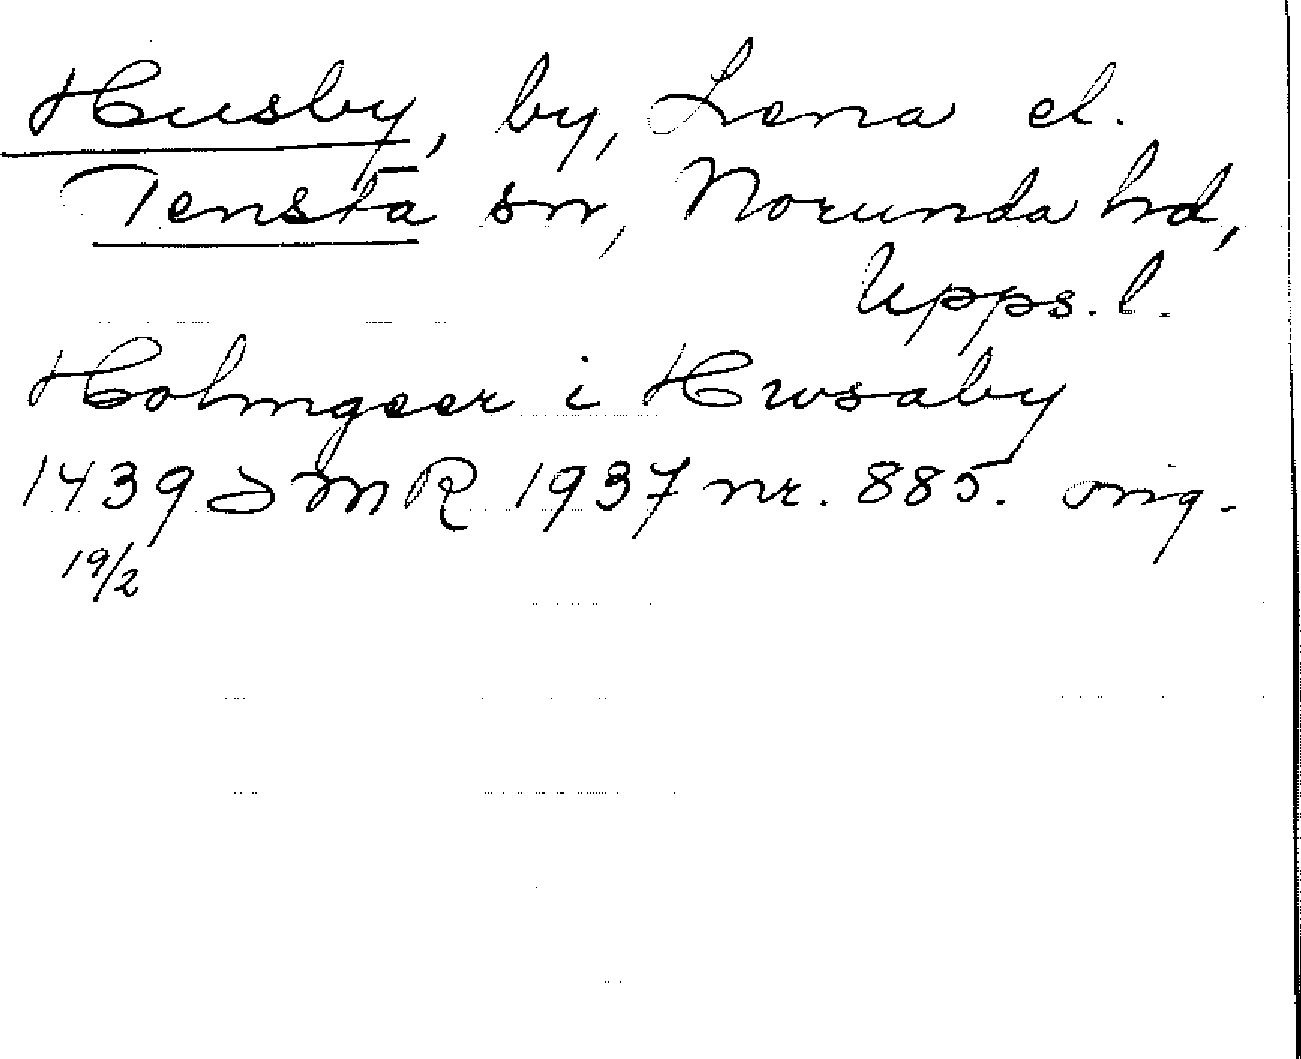 Husby, by, Lena el.
Tensta sn, Norunda hd,
Upps. l.
Holmgeer i Hwsaby
1439 SMR 1937 nr. 885. orig.
19/2